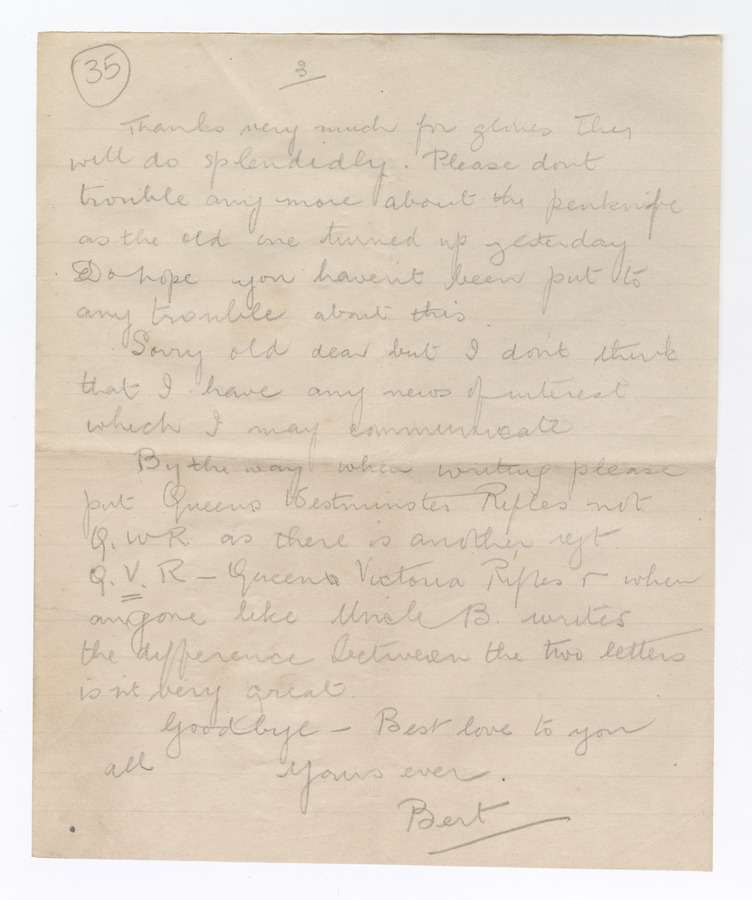 35
3
Thanks very much for gloves They
will do splendidly. Please dont
trouble any more about the penknife
as the old one turned up yesterday
Do hope you haven't been put to
any trouble about this
Sorry old dear but I dont think
that I have any news of interest
which I may communicate
By the way when writing please
put Queens Westminster Rifles not
Q.W R as there is another regt.
Q.V. R – Queens Victoria Rifles & when
anyone like Uncle B. writes
the difference between the two letters
is n't very great.
Goodbye – Best love to you
all Yours ever.
Bert